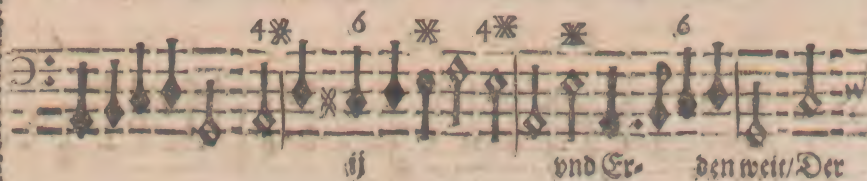 4※ 6 ※ 4※ ※ 6
ij vnd Er- den weit/Der